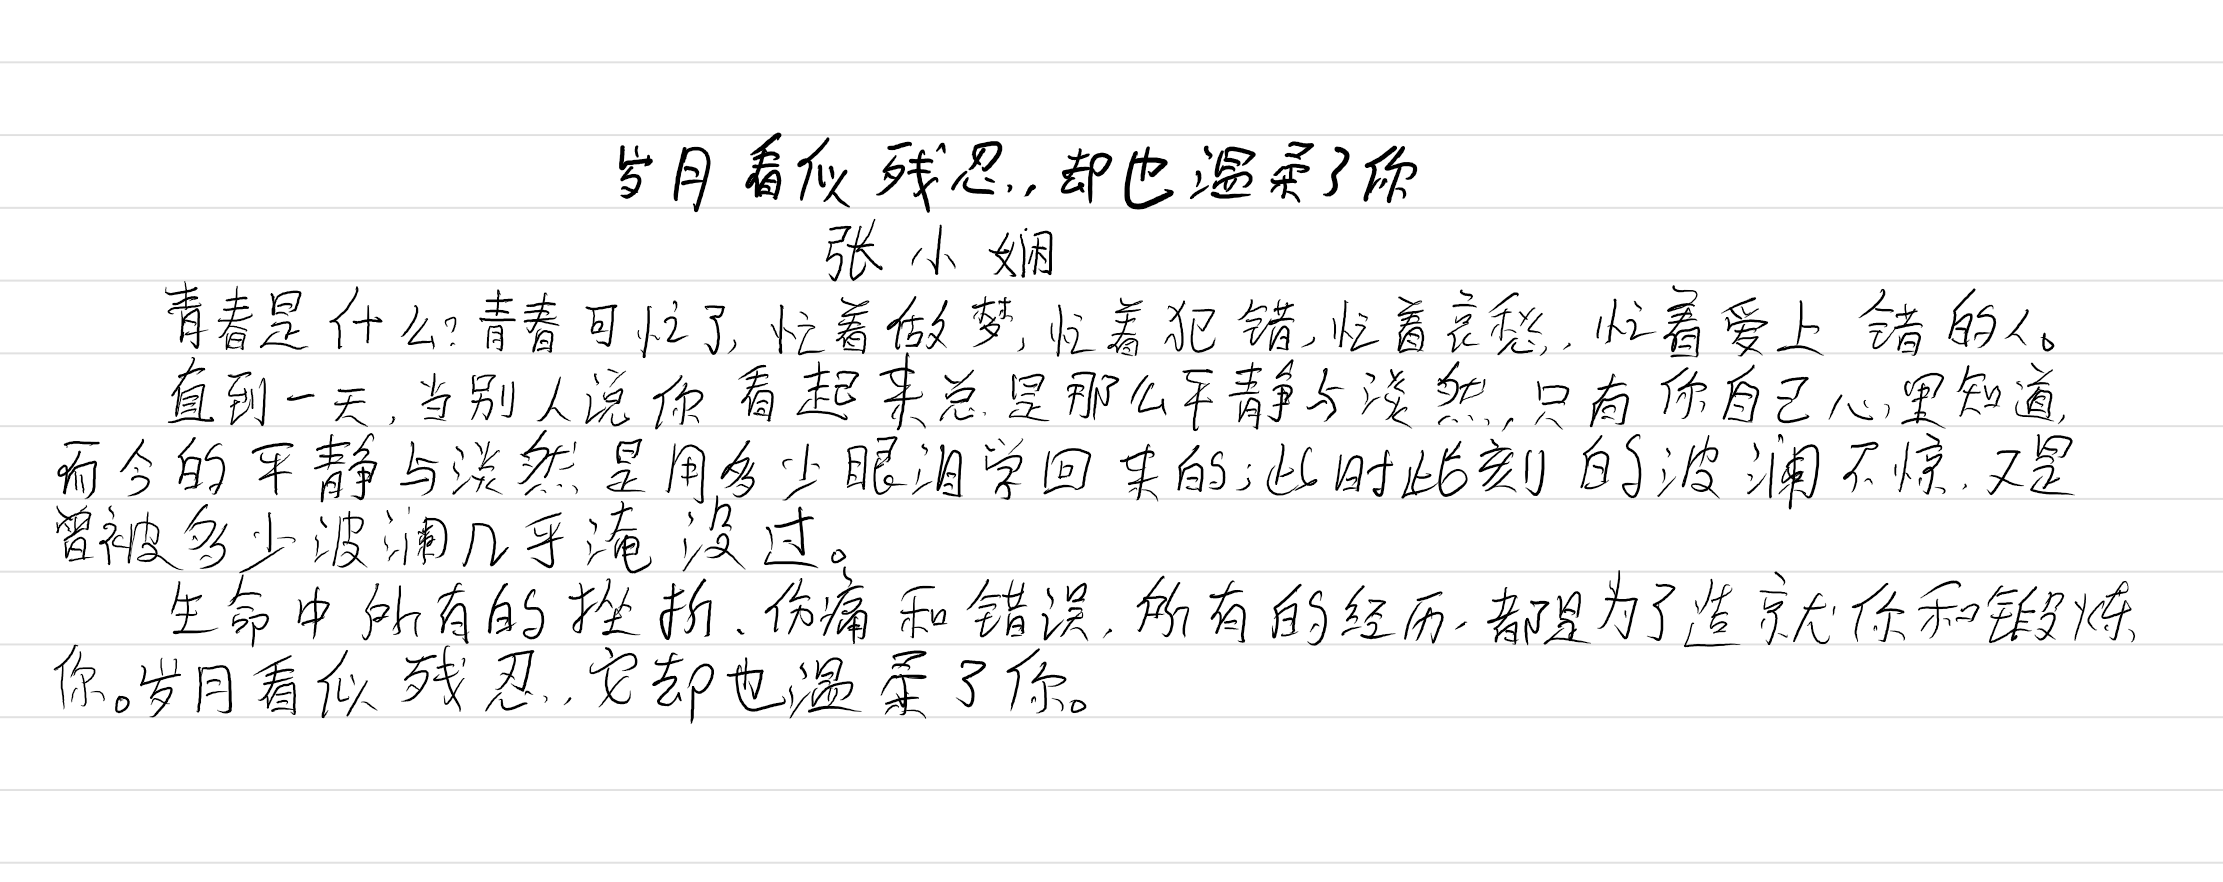 岁月看似残忍，却也温柔了你
张小娴
青春是什么？青春可忙了，忙着做梦，忙着犯错，忙着哀愁，忙着爱上错的人。
直到一天，当别人说你看起来总是那么平静与淡然，只有你自己心里知道，
而今的平静与淡然是用多少眼泪学回来的；此时此刻的波澜不惊，又是
曾被多少波澜几乎淹没过。
生命中所有的挫折、伤痛和错误，所有的经历，都是为了造就你和锻炼
你。岁月看似残忍，它却也温柔了你。